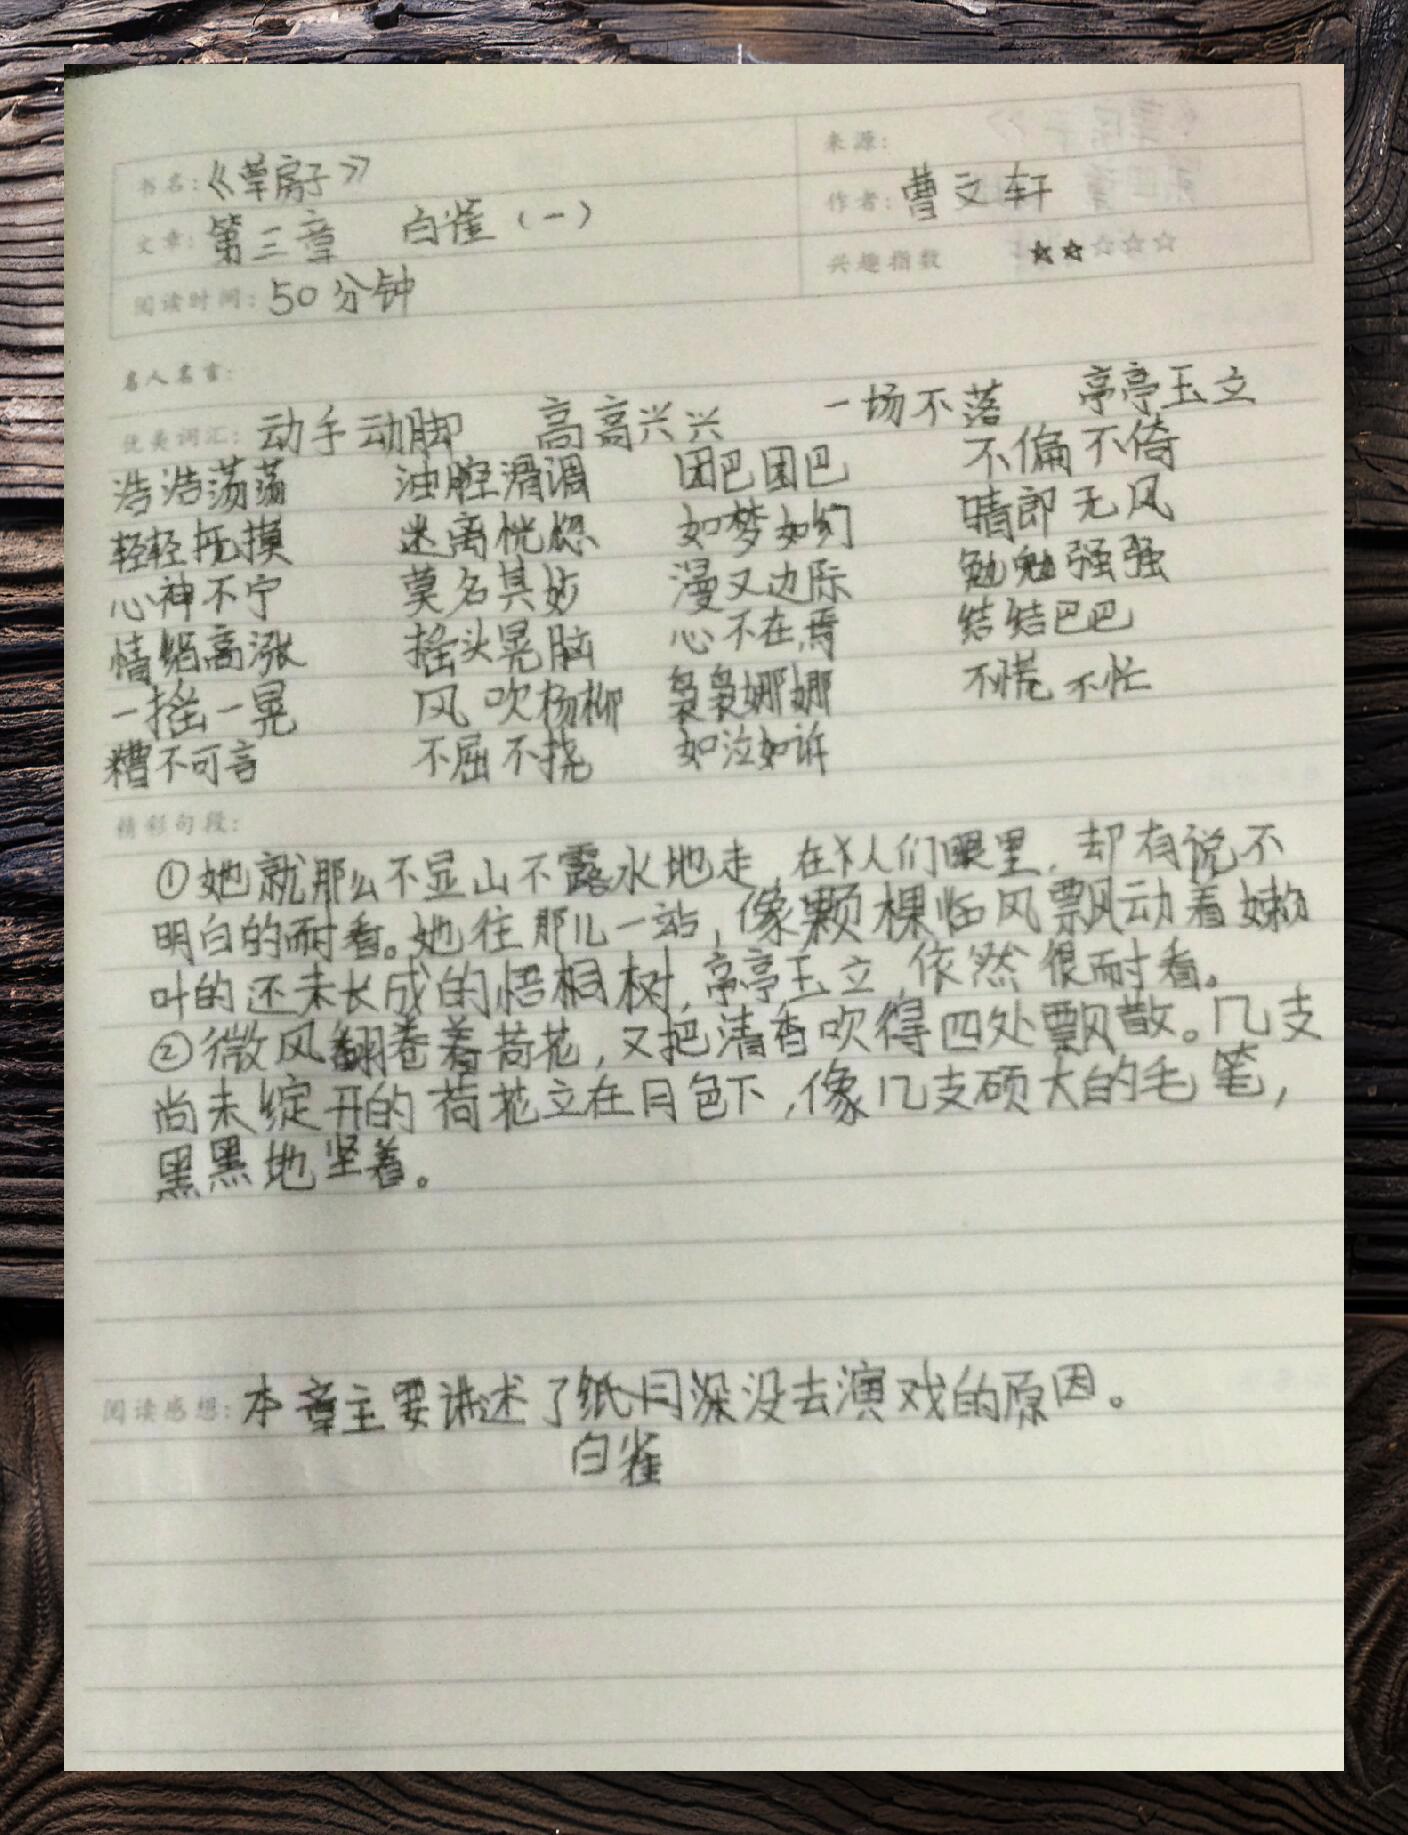 书名:《草房子》 来源:
文章:第三章 白雀(一) 作者:曹文轩
阅读时间:50分钟 兴趣指数 ☆☆☆☆☆
名人名言:
优美词汇:动手动脚 高高兴兴 一场不落 亭亭玉立
浩浩荡荡 油腔滑调 团巴团巴 不偏不倚
轻轻抚摸 迷离恍惚 如梦如幻 晴郎无风
心神不宁 莫名其妙 漫又边际 勉勉强强
情绪高涨 摇头晃脑 心不在焉 结结巴巴
一摇一晃 风吹杨柳 袅袅娜娜 不慌不忙
糟不可言 不屈不挠 如泣如诉
精彩句段:
①她就那么不显山不露水地走,在人们眼里,却有说不
明白的耐看。她往那儿一站,像棵临风飘动着嫩
叶的还未长成的梧桐树,亭亭玉立,依然很耐看。
②微风翻卷着荷花,又把清香吹得四处飘散。几支
尚未绽开的荷花立在月色下,像几支硕大的毛笔,
黑黑地坚着。
阅读感想:本章主要讲述了纸月深没去演戏的原因。
白雀